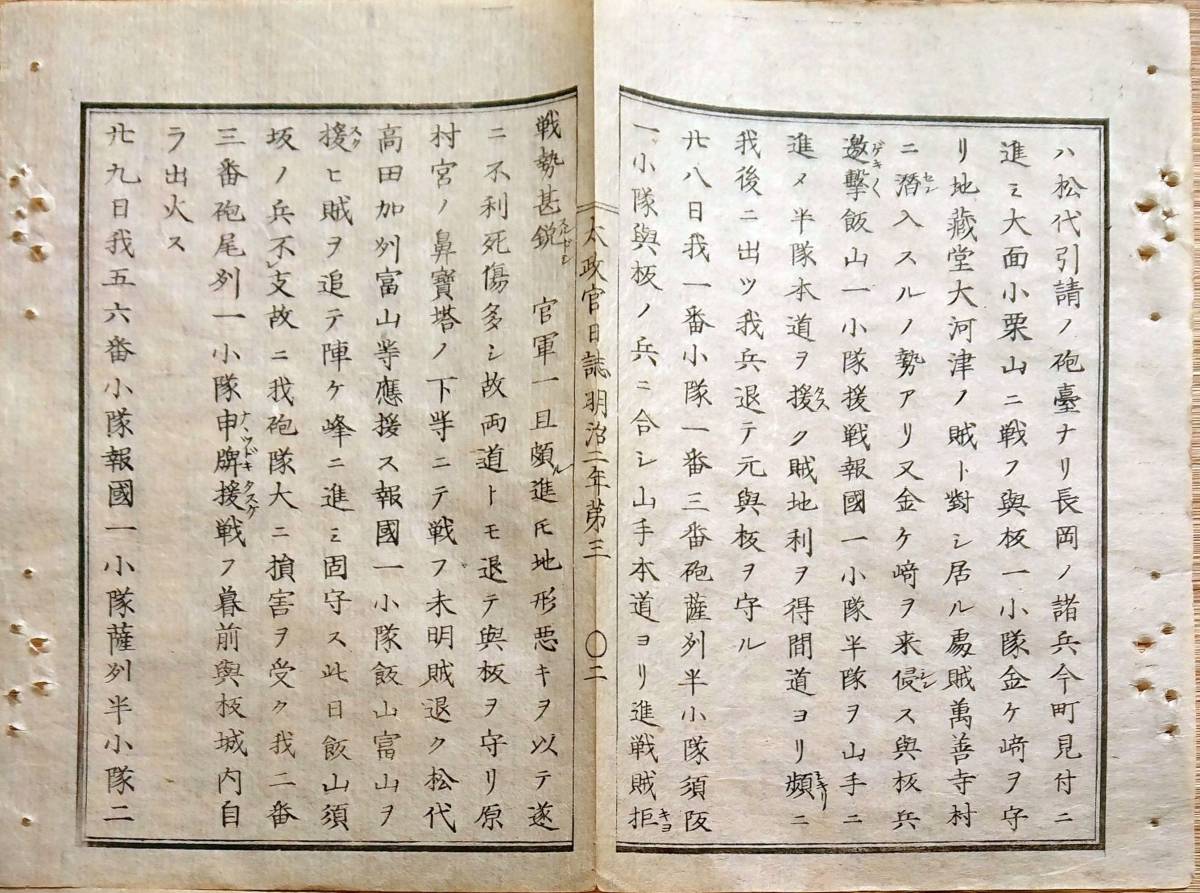 ハ松代引請ノ砲臺ナリ長岡ノ諸兵今町見付ニ
進ミ大面小栗山ニ戦フ與板一小隊金ケ﨑ヲ守
リ地藏堂大河津ノ賊ト對シ居ル處賊萬善寺村
ニ潛入スルノ勢アリ又金ケ﨑ヲ来侵ス與板兵
邀擊飯山一小隊援戦報國一小隊半隊ヲ山手ニ
進メ半隊本道ヲ援ク賊地利ヲ得間道ヨリ頻ニ
我後ニ出ツ我兵退テ元與板ヲ守ル
廿八日我一番小隊一番三番砲薩州半小隊須阪
一小隊與板ノ兵ニ合シ山手本道ヨリ進戦賊拒
太政官日誌明治二年第三 〇二
戦勢甚鋭 官軍一旦頗進ㇳモ地形悪キヲ以テ遂
ニ不利死傷多シ故両道トモ退テ與板ヲ守リ原
村宮ノ鼻寶塔ノ下等ニテ戦フ未明賊退ク松代
高田加州富山等應援ス報國一小隊飯山富山ヲ
援ヒ賊ヲ追テ陣ケ峰ニ進ミ固守ス此日飯山須
坂ノ兵不レ支故ニ我砲隊大ニ損害ヲ受ク我二番
三番砲尾州一小隊申牌援戦フ暮前與板城内自
ラ出火ス
廿九日我五六番小隊報國一小隊薩州半小隊二